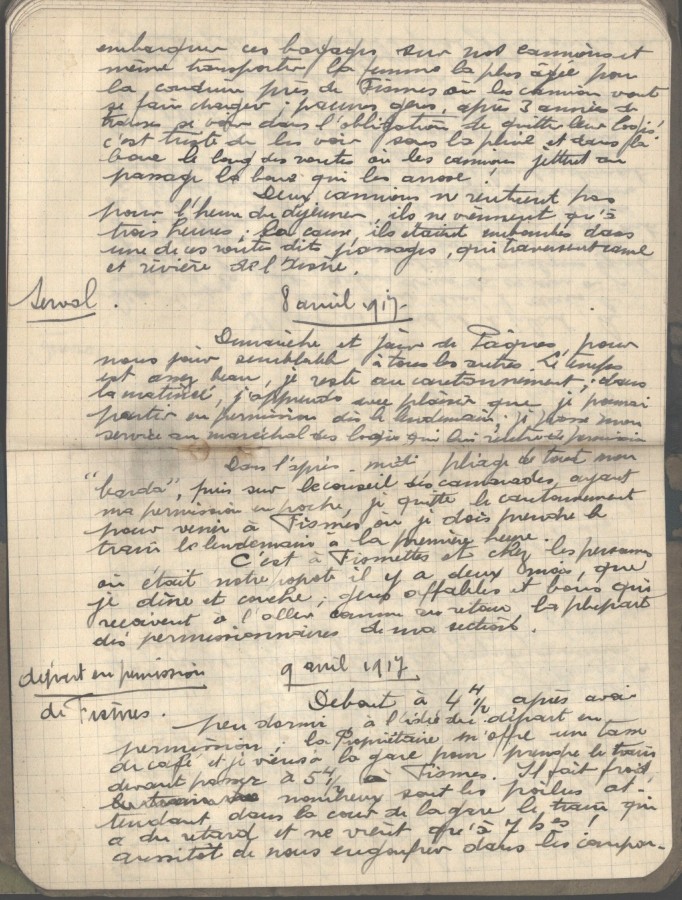 embarquer ces bagages sur nos camions et
même transporter la femme la plus âgée pour
la conduire près de Fismes où les camions vont
se faire charger; pauvres gens, après 3 années de
se voir dans l'obligation de quitter leur logis,
c'est triste de les voir sous la pluie et dans la
boue le long des routes où les camions jettent au
passage la boue qui les arrose!
Deux camions ne rentrent pas
pour l'heure du déjeuner, ils ne viennent qu'à
trois heures; la cause, ils étaient embourbés dans
une de ces routes dits passages, qui traversent canal
et rivière de l'Aisne.
Serval. 8 avril 1917
Dimanche et jour de Pâques, pour
nous jour semblable à tous les autres. Le temps
est assez beau, je reste au cantonnement; dans
la matinée, j'apprends avec plaisir que je pourrai
partir en permission dès le lendemain; je passe mon
service au maréchal des logis qui lui rentre de permission
Dans l'après-midi pliage de tout mon
"barda", puis sur le conseil des camarades, ayant
ma permission en poche, je quitte le cantonnement
pour venir à Fismes où je dois prendre le
train le lendemain à la première heure.
C'est à Fismettes et chez les personnes
où était notre popote il y a deux mois, que
je dîne et couche; gens affables et bons qui
reçoivent à l'aller comme au retour la plupart
des permissionnaires de ma section.
départ en permission 9 avril 1917
de Fismes.
Debout à 4 h 1/2 après avoir
peu dormi à l'idée du départ en
permission; la Propriétaire m'offre une tasse
de café et je viens à la gare pour prendre le train
devant passer à 5 h 1/2 à Fismes. Il fait froid,
nombreux sont les poilus at-
tendant dans la cour de la gare le train qui
a du retard et ne vient qu'à 7 h
aussitôt de nous engouffrer dans les compar-